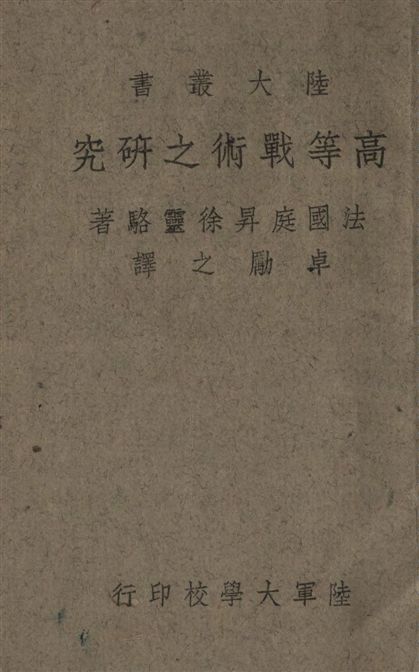 陸大叢書
高等戰術之研究
法國庭昇徐靈駱著
卓勵之譯
陸軍大學校印行